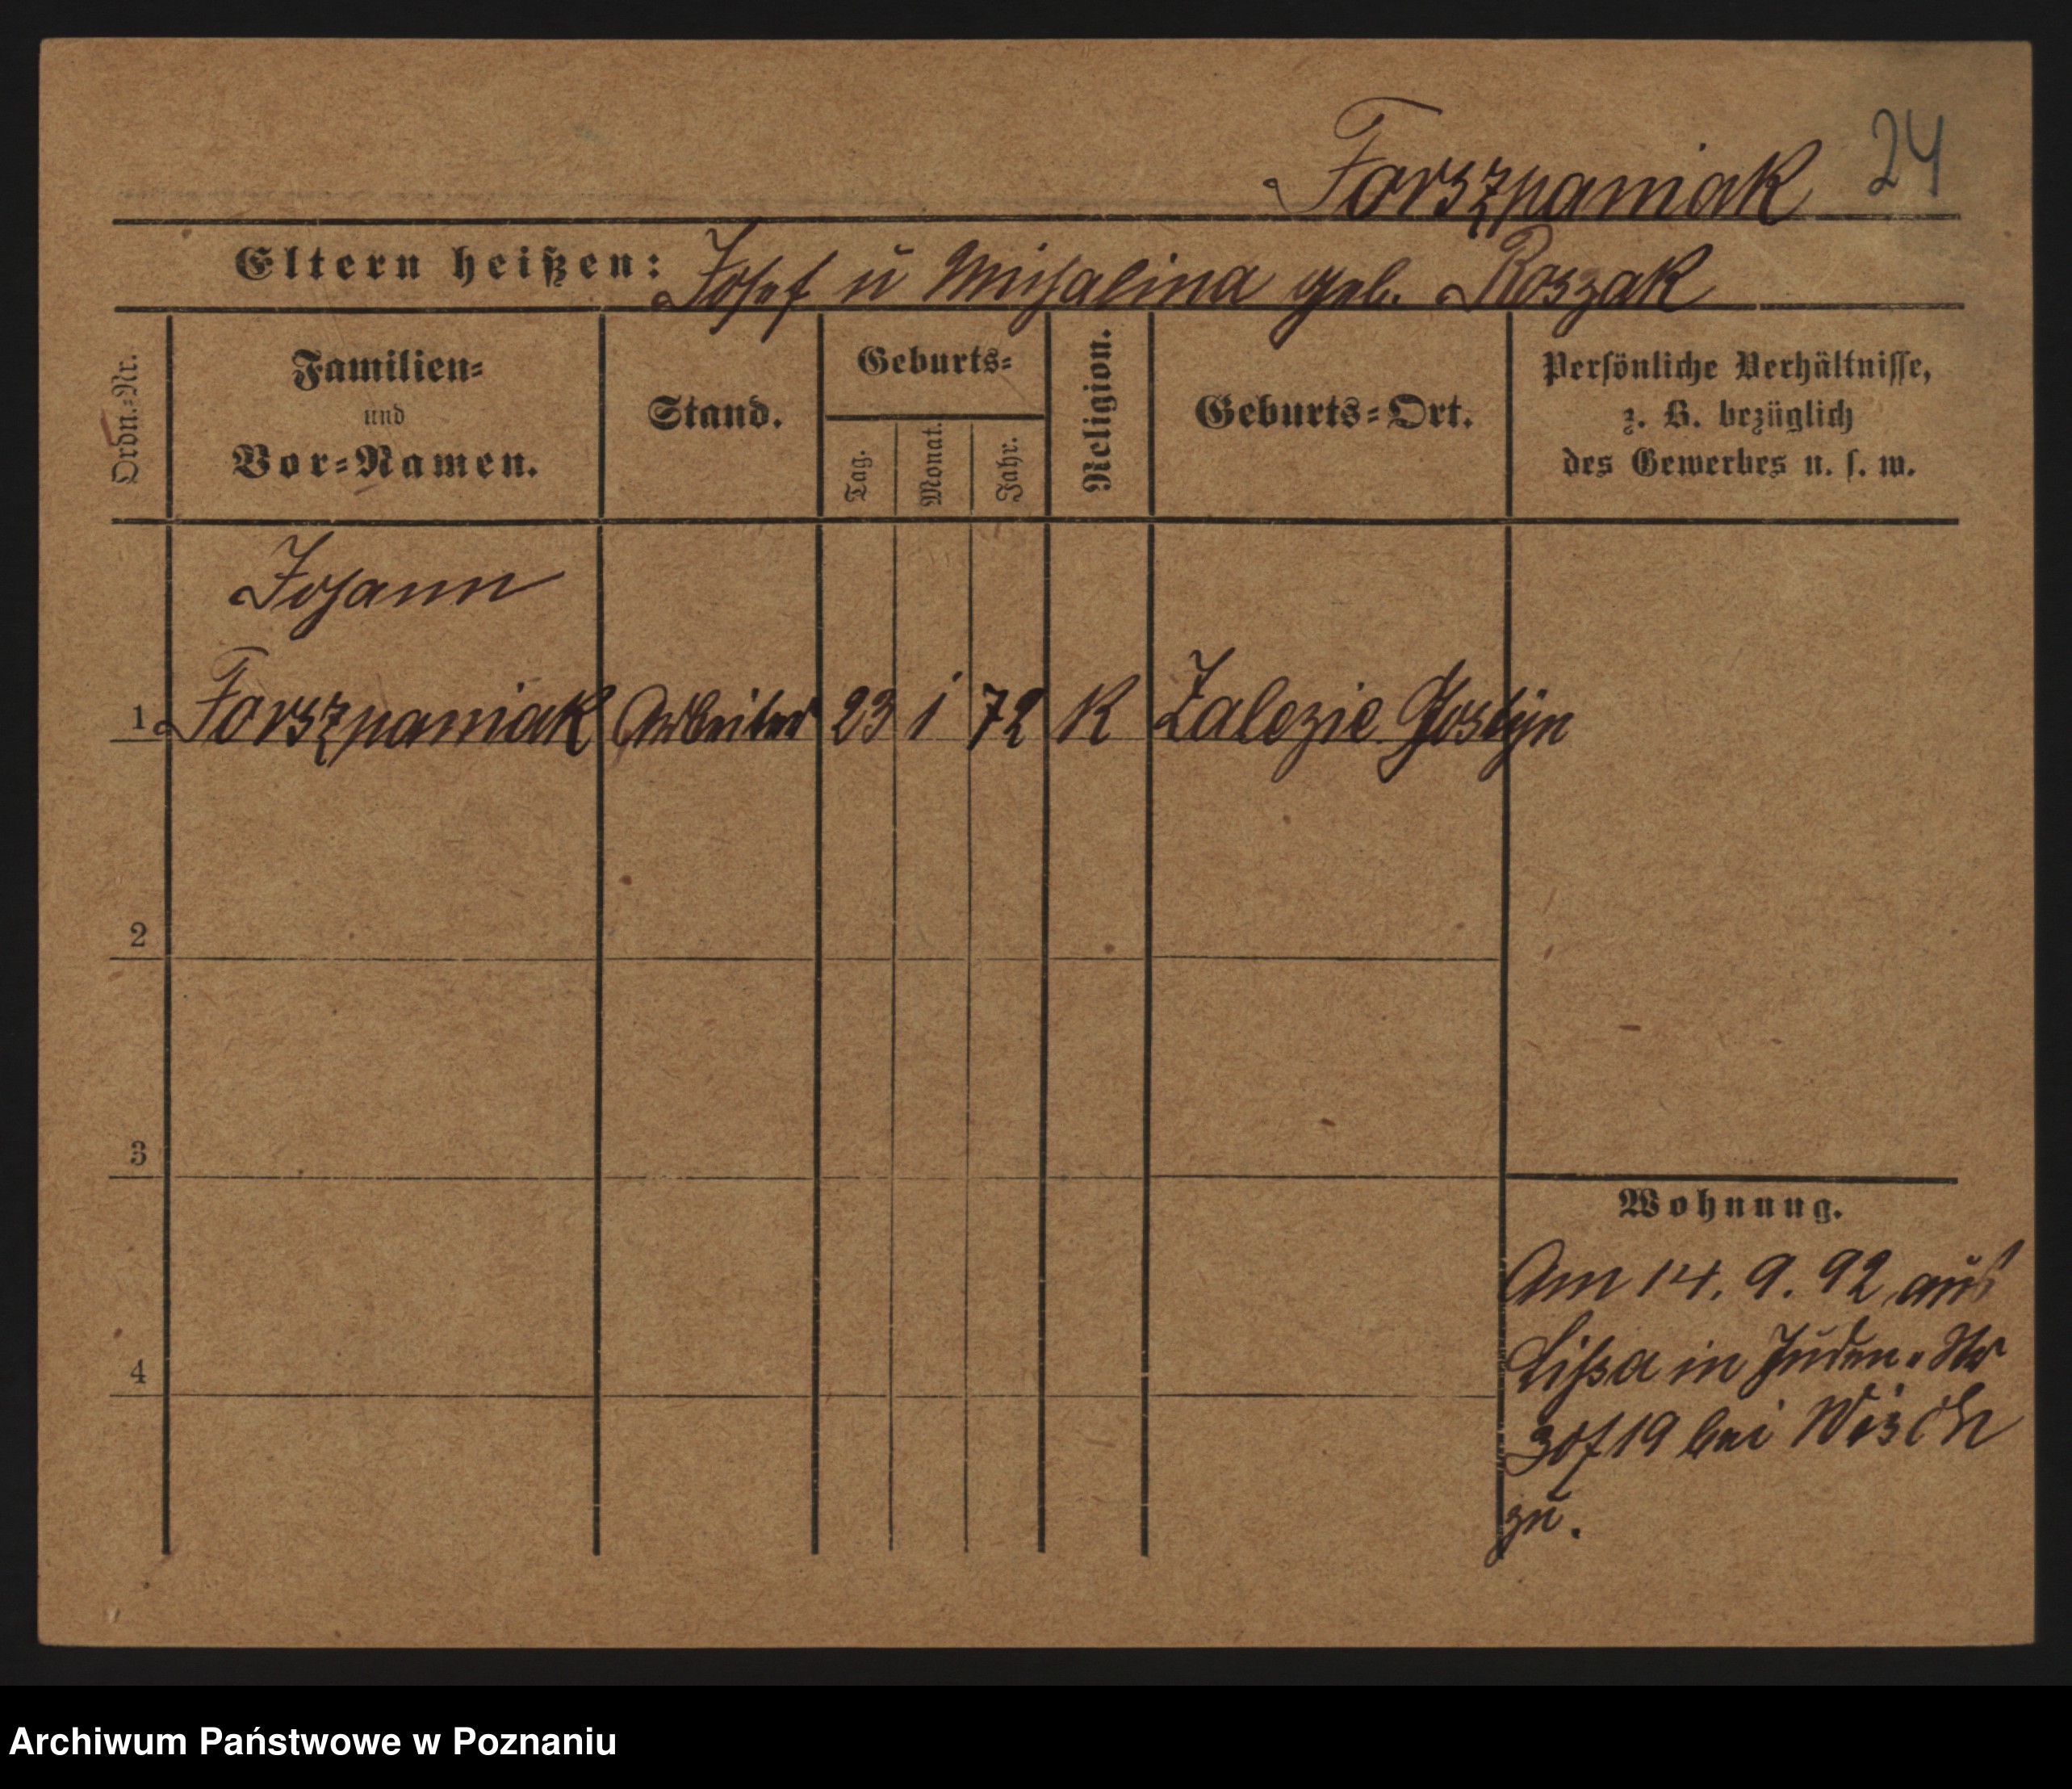 Forszpaniak 24
Eltern heißen: Josef u Michalina geb. Roszak
Ordn.-Nr.
Familien-
und
Vor-Namen.
Stand.
Geburts-
Tag.
Monat.
Jahr.
Religion.
Geburts-Ort.
Persönliche Verhältnisse,
z. B. bezüglich
des Gewerbes u. s. w.
Johann
1 Forszpaniak Arbeiter 23 1 72 K Zalezie Gostyn
2
3
4
Wohnung.
Am 14. 9. 92 aus
Lissa in Juden-Str
19 bei
zu.
Archiwum Państwowe w Poznaniu